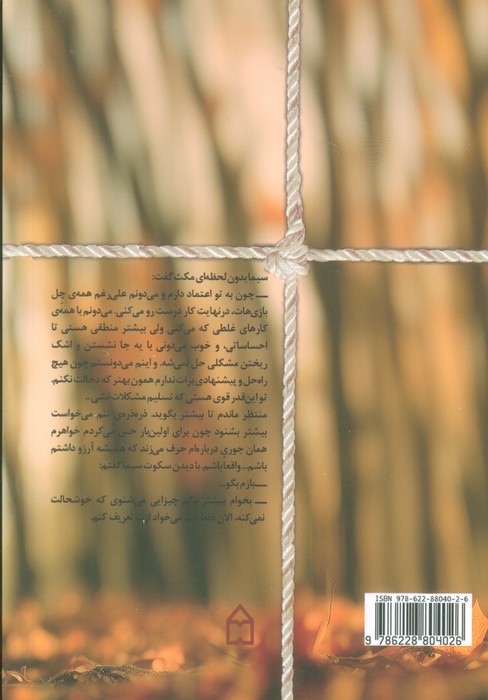 سیما بدون لحظه‌ای مکث گفت:
ــ چون به تو اعتماد دارم و می‌دونم علی‌رغم همه‌ی چل
بازی‌هات، در نهایت کار درست رو می‌کنی. می‌دونم با همه‌ی
کارهای غلطی که می‌کنی ولی بیشتر منطقی هستی تا
احساساتی، و خوب می‌دونی با یه جا نشستن و اشک
ریختن مشکلی حل نمی‌شه. و اینم می‌دونستم چون هیچ
راه‌حل و پیشنهادی برات ندارم همون بهتر که دخالت نکنم.
تو این‌قدر قوی هستی که تسلیم مشکلات نشی...
منتظر ماندم تا بیشتر بگوید. ذره‌ذره‌ی تنم می‌خواست
بیشتر بشنود چون برای اولین‌بار حس می‌کردم خواهرم
همان جوری درباره‌ام حرف می‌زند که همیشه آرزو داشتم
باشم... واقعاً باشم. با دیدن سکوت سیما گفتم:
ــ بازم بگو..
ــ بخوام بیشتر بگم چیزایی می‌شنوی که خوشحالت
نمی‌کنه. الان فقط می‌خواد ازت تعریف کنم.
ISBN 978-622-88040-2-6
9 786228 804026